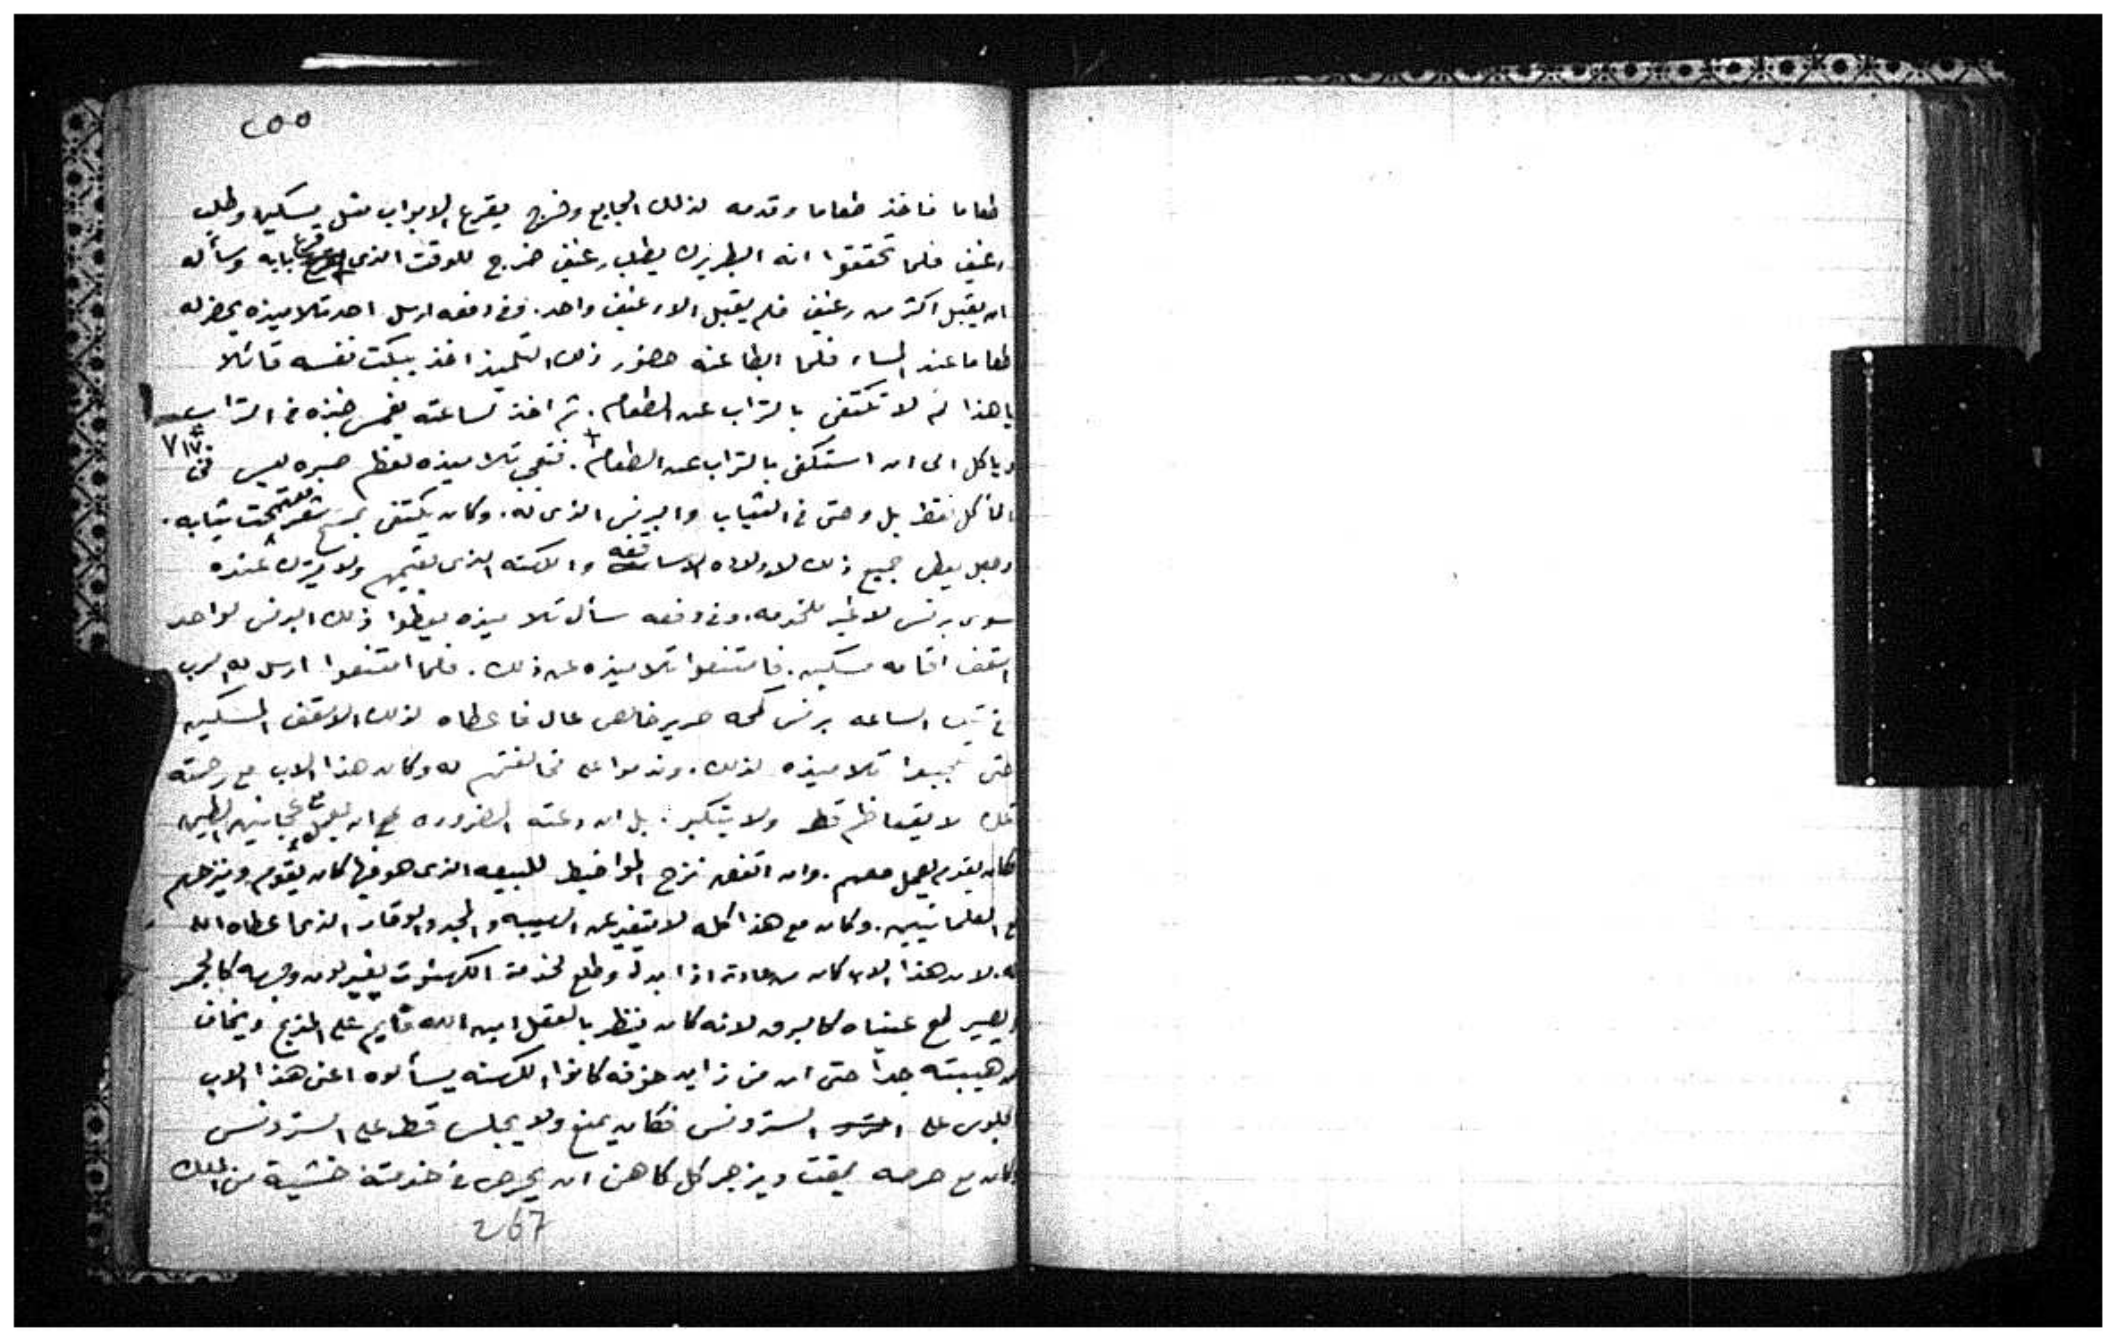 ٢٥٥
طعاما فاخذ طعاما وقدمه لذلك الجايع وخرج يقرع الابواب مثل مسكين وطلب
رغيف فلما تحققوا انه البطريرك يطلب رغيف خرج للوقت الذى قرع بابه وسأله
ان يقبل اكثر من رغيف فلم يقبل الا رغيف واحد. وفى دفعه ارسل احد تلاميذه يحضر له
طعاما عند المساء فلما ابطا عنه حضور ذلك التلميذ اخذ يبكت نفسه قائلا
يا هذا لم لا تكتفى بالتراب عن الطعام. ثم اخذ لساعته يغمس خبزه فى التراب
وياكل الى ان استكفى بالتراب عن الطعام. فتعجب تلاميذه لعظم صبره ليس فى ٧١٧
المأكل فقط بل وحتى فى الثياب والبرنس الذى له. وكان يكتفى بمسح شعر تحت ثيابه.
وجعل يعطى جميع ذلك لاولاده الاساقفه والكهنه الذى يقيمهم ولا يترك عنده
سوى برنس لا غير للخدمه. وفى دفعه سأل تلاميذه يعطوا ذلك البرنس لواحد
اسقف اقامه مسكين. فامتنعوا تلاميذه عن ذلك. فلما امتنعوا ارسل له الرب
فى تلك الساعه برنس كمحه حرير خالص عال فاعطاه لذلك الاسقف المسكين
حتى تعجبوا تلاميذه لذلك. وندموا على مخالفتهم له وكان هذا الاب مع رحمته
تلك لا يتعاظم قط ولا يتكبر. بل ان دعته الضروره ان يعمل مع عجانين الطين
فكان يقدم يعمل معهم. وان اتفق نزح المواخيط للبيعه الذى هو فيها كان يقوم وينزحهم
مع العلمانيين. وكان مع هذا كله لا يتغير عن الهيبه والمجد والوقار الذى اعطاه الله
له. لان هذا الاب كان من عادته اذا ابدل وطلع لخدمة الكهنوت يتغير لون وجهه كالجمر
ويصير لمع عيناه كالبرق لانه كان ينظر بالعقل ابن الله قايم على المذبح ويخاف
من هيبته جداً حتى ان من زايد خوفه كانوا الكهنه يسألوه اعنى هذا الاب
الجلوس على السترونس فكان يمنع ولا يجلس قط على السترونس
وكان مع حرصه يمقت ويزجر كل كاهن ان يحرص فى خدمته خشية من الملك
267